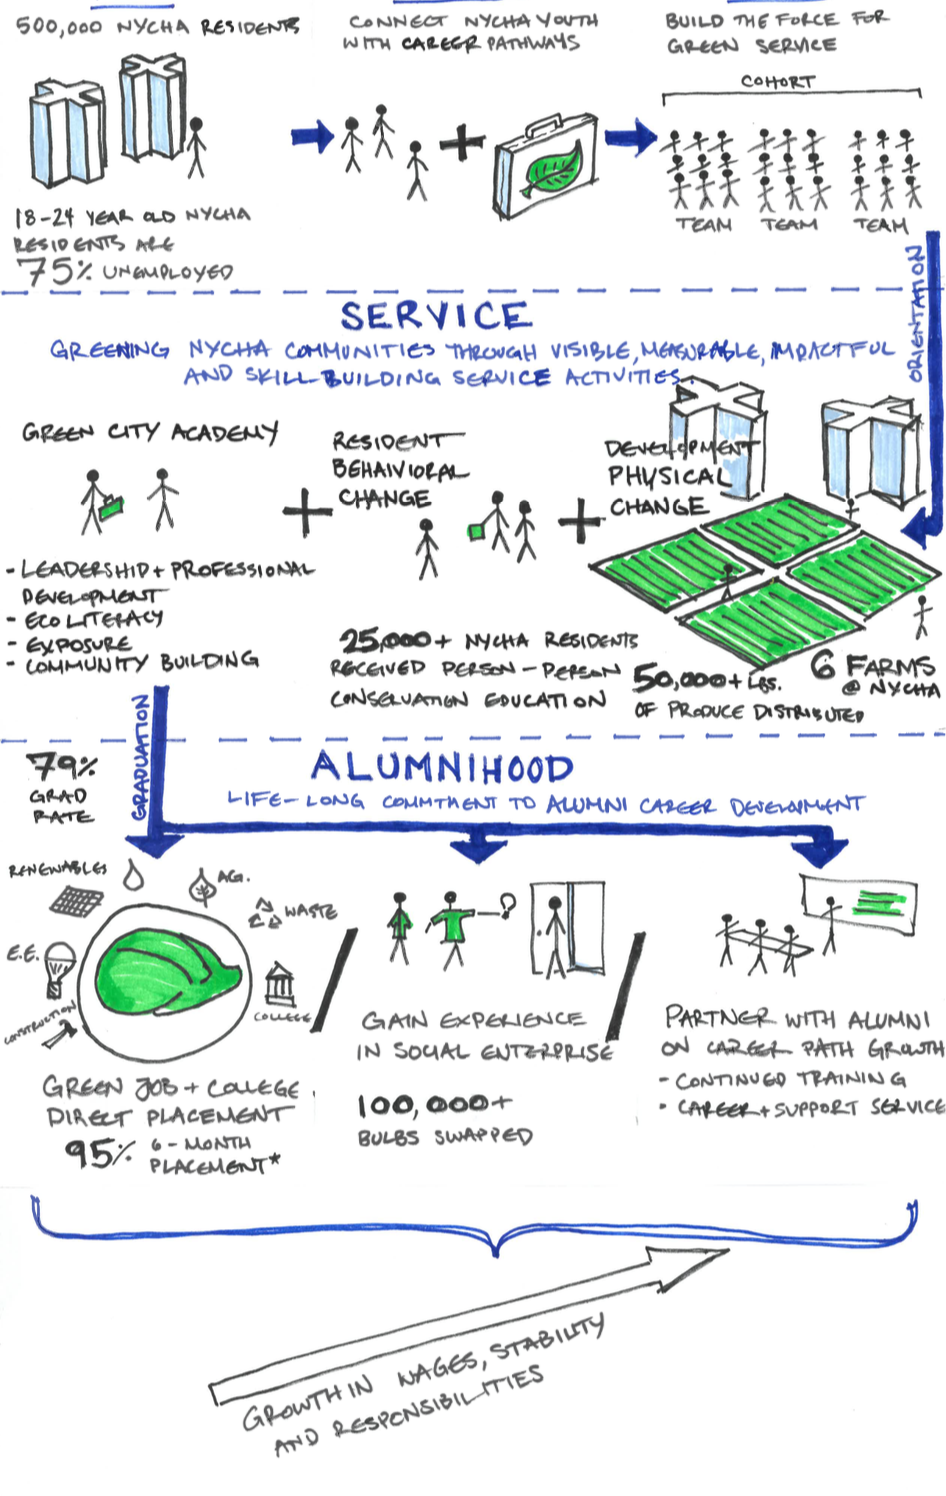 500,000 NYCHA RESIDENTS
18-24 YEAR OLD NYCHA
RESIDENTS ARE
75% UNEMPLOYED
CONNECT NYCHA YOUTH
WITH CAREER PATHWAYS
BUILD THE FORCE FOR
GREEN SERVICE
COHORT
TEAM TEAM TEAM
ORIENTATION
SERVICE
GREENING NYCHA COMMUNITIES THROUGH VISIBLE, MEASURABLE, IMPACTFUL
AND SKILL-BUILDING SERVICE ACTIVITIES.
GREEN CITY ACADEMY
- LEADERSHIP + PROFESSIONAL
DEVELOPMENT
- ECO LITERACY
- EXPOSURE
- COMMUNITY BUILDING
+
RESIDENT
BEHAIVIORAL
CHANGE
25,000+ NYCHA RESIDENTS
RECEIVED PERSON-PERSON
CONSERVATION EDUCATION
+
DEVELOPMENT
PHYSICAL
CHANGE
50,000+ LBS.
OF PRODUCE DISTRIBUTED
6 FARMS
@ NYCHA
GRADUATION
79%
GRAD
RATE
ALUMNIHOOD
LIFE-LONG COMMTMENT TO ALUMNI CAREER DEVELOPMENT
RENEWABLES
AG.
WASTE
E.E.
COLLEGE
CONSTRUCTION
GREEN JOB + COLLEGE
DIRECT PLACEMENT
95% 6-MONTH
PLACEMENT*
GAIN EXPERIENCE
IN SOCIAL ENTERPRISE
100,000+
BULBS SWAPPED
PARTNER WITH ALUMNI
ON CAREER PATH GROWTH
- CONTINUED TRAINING
- CAREER + SUPPORT SERVICE
GROWTH IN WAGES, STABILITY
AND RESPONSIBILITIES